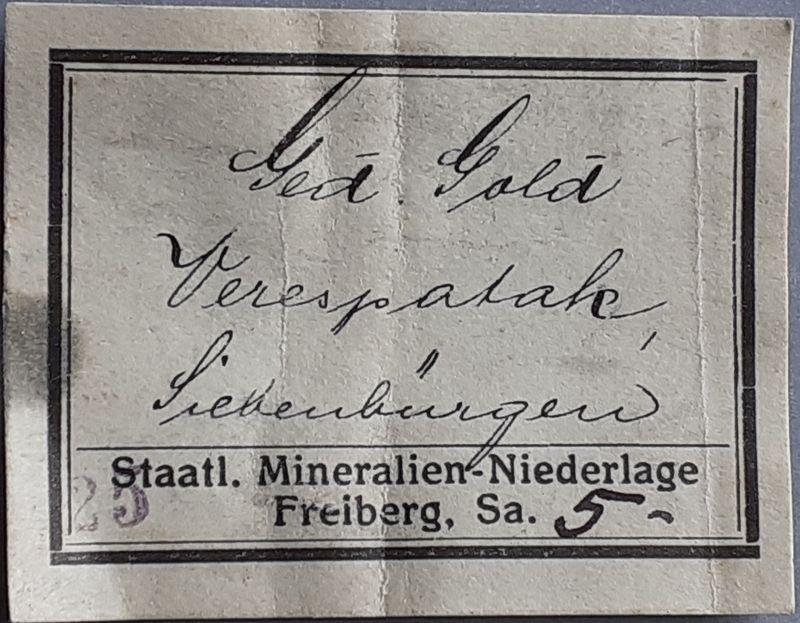 Ged. Gold
Verespatak,
Siebenbürgen
Staatl. Mineralien-Niederlage
Freiberg, Sa. 5-
25